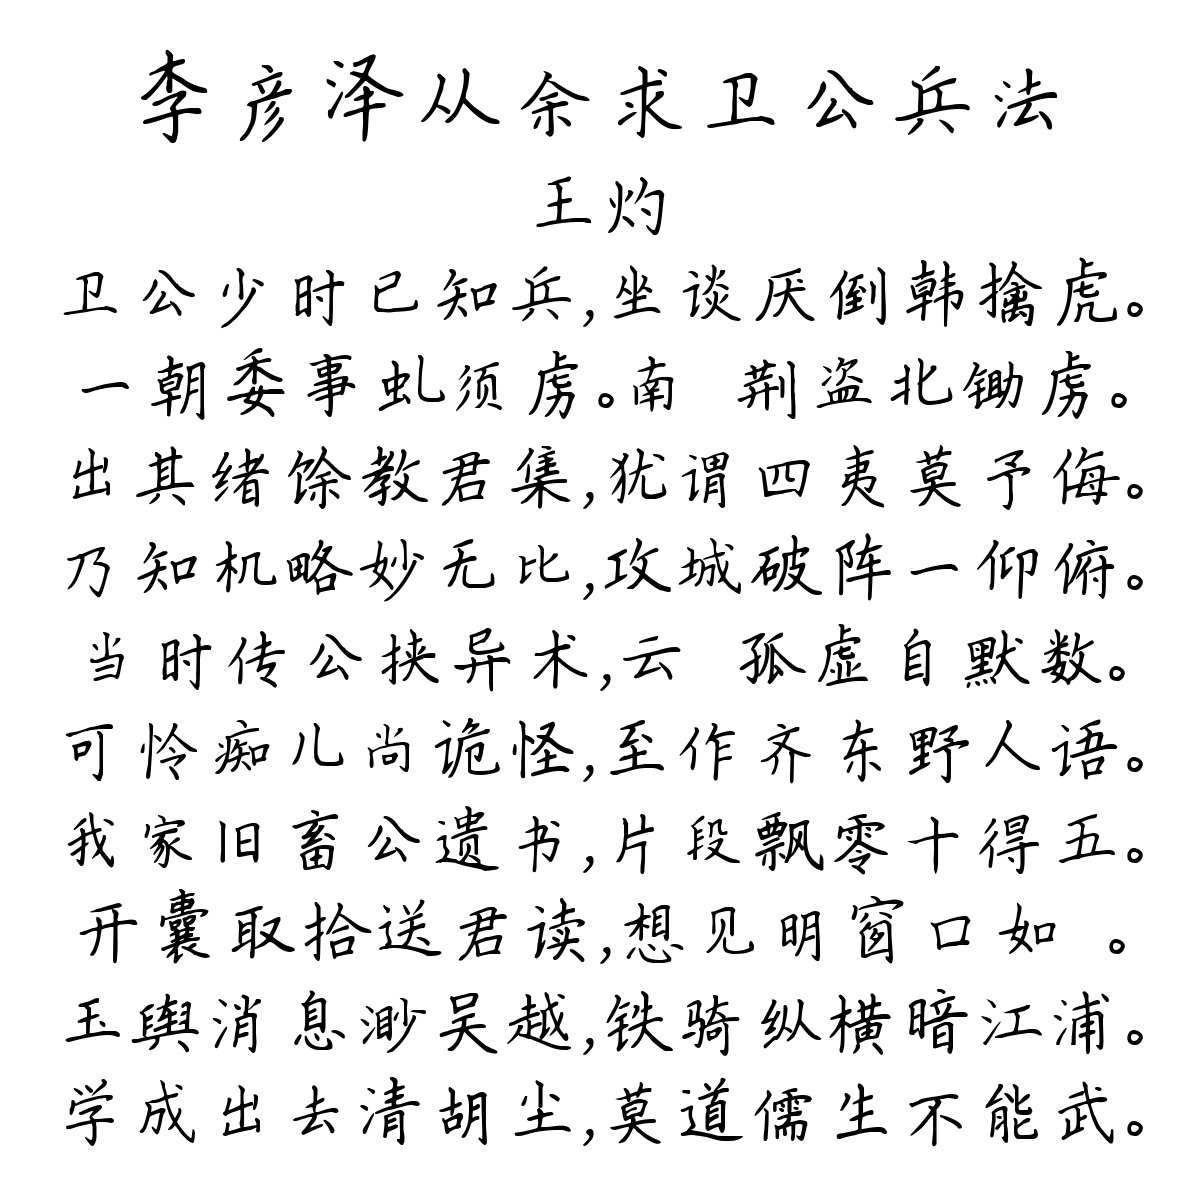 李彦泽从余求卫公兵法
王灼
卫公少时已知兵,坐谈厌倒韩擒虎。
一朝委事虬须虏。南 荆盗北锄虏。
出其绪馀教君集,犹谓四夷莫予侮。
乃知机略妙无比,攻城破阵一仰俯。
当时传公挟异术,云 孤虚自默数。
可怜痴儿尚诡怪,至作齐东野人语。
我家旧畜公遗书,片段飘零十得五。
开囊取拾送君读,想见明窗口如 。
玉舆消息渺吴越,铁骑纵横暗江浦。
学成出去清胡尘,莫道儒生不能武。